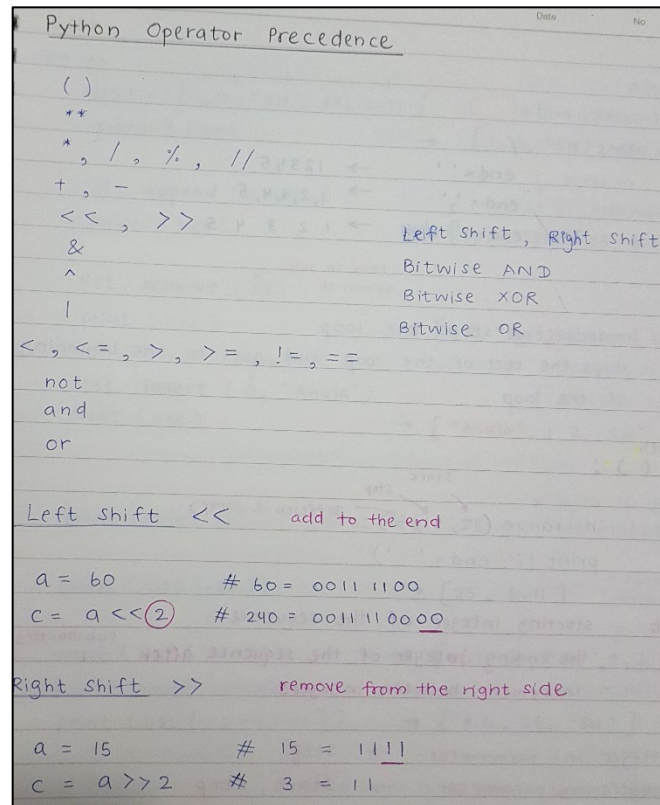 Date No
Python Operator Precedence
( )
**
*, /, %, //
+, -
<<, >> Left shift, Right shift
& Bitwise AND
^ Bitwise XOR
| Bitwise OR
<, <=, >, >=, !=, ==
not
and
or
Left shift << add to the end
a = 60 # 60 = 0011 1100
c = a << 2 # 240 = 0011 11 00 00
Right shift >> remove from the right side
a = 15 # 15 = 1111
c = a >> 2 # 3 = 11